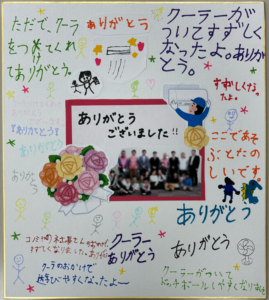 ただで、クーラー
をつけてくれ
てありがとう。
ありがとう
クーラーが
ついてすずしく
なったよ。ありがとう。
すずしくなっ
たよ。
ありがとう
ございました!!
『ありがとう』
ありがとう
ありがとう
ここであそ
ぶとたの
しいです
ありがとう
クーラー
ありがとう
ありがとう
クーラーのおかげで
遊びやすくなったよ〜
クーラーがついて
ドッチボールしやすくなりました